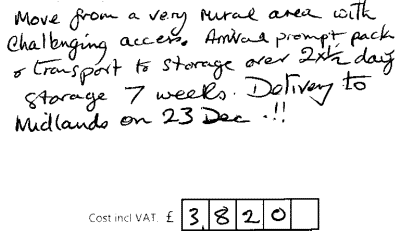 Move from a very rural area with
Challenging access. Arrival prompt pack
& transport to storage over 2x½ day
storage 7 weeks. Delivery to
Midlands on 23 Dec .!!
Cost incl VAT. £ 3,820